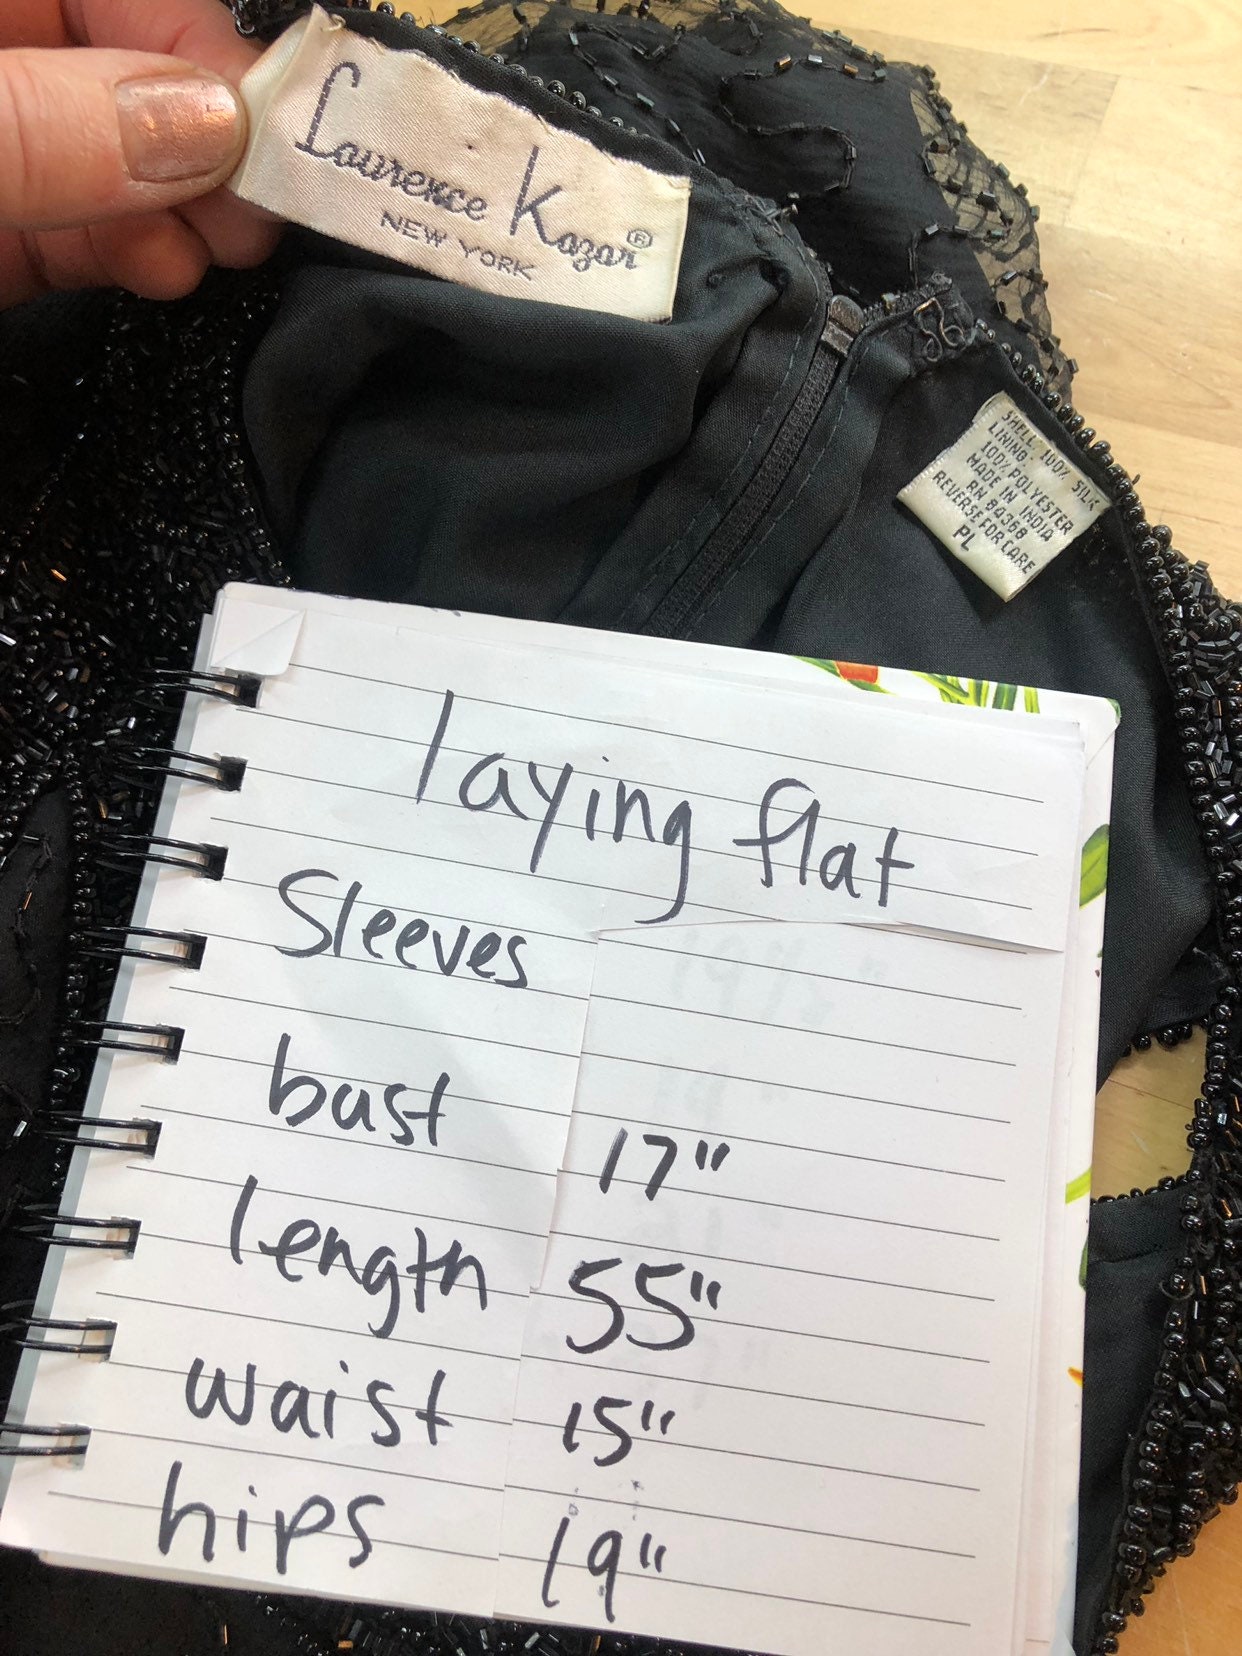 Laurence Kazar®
NEW YORK
SHELL 100% SILK
LINING:
100% POLYESTER
MADE IN INDIA
RN 84368
REVERSE FOR CARE
PL
laying flat
Sleeves
bust 17"
length 55"
waist 15"
hips 19"